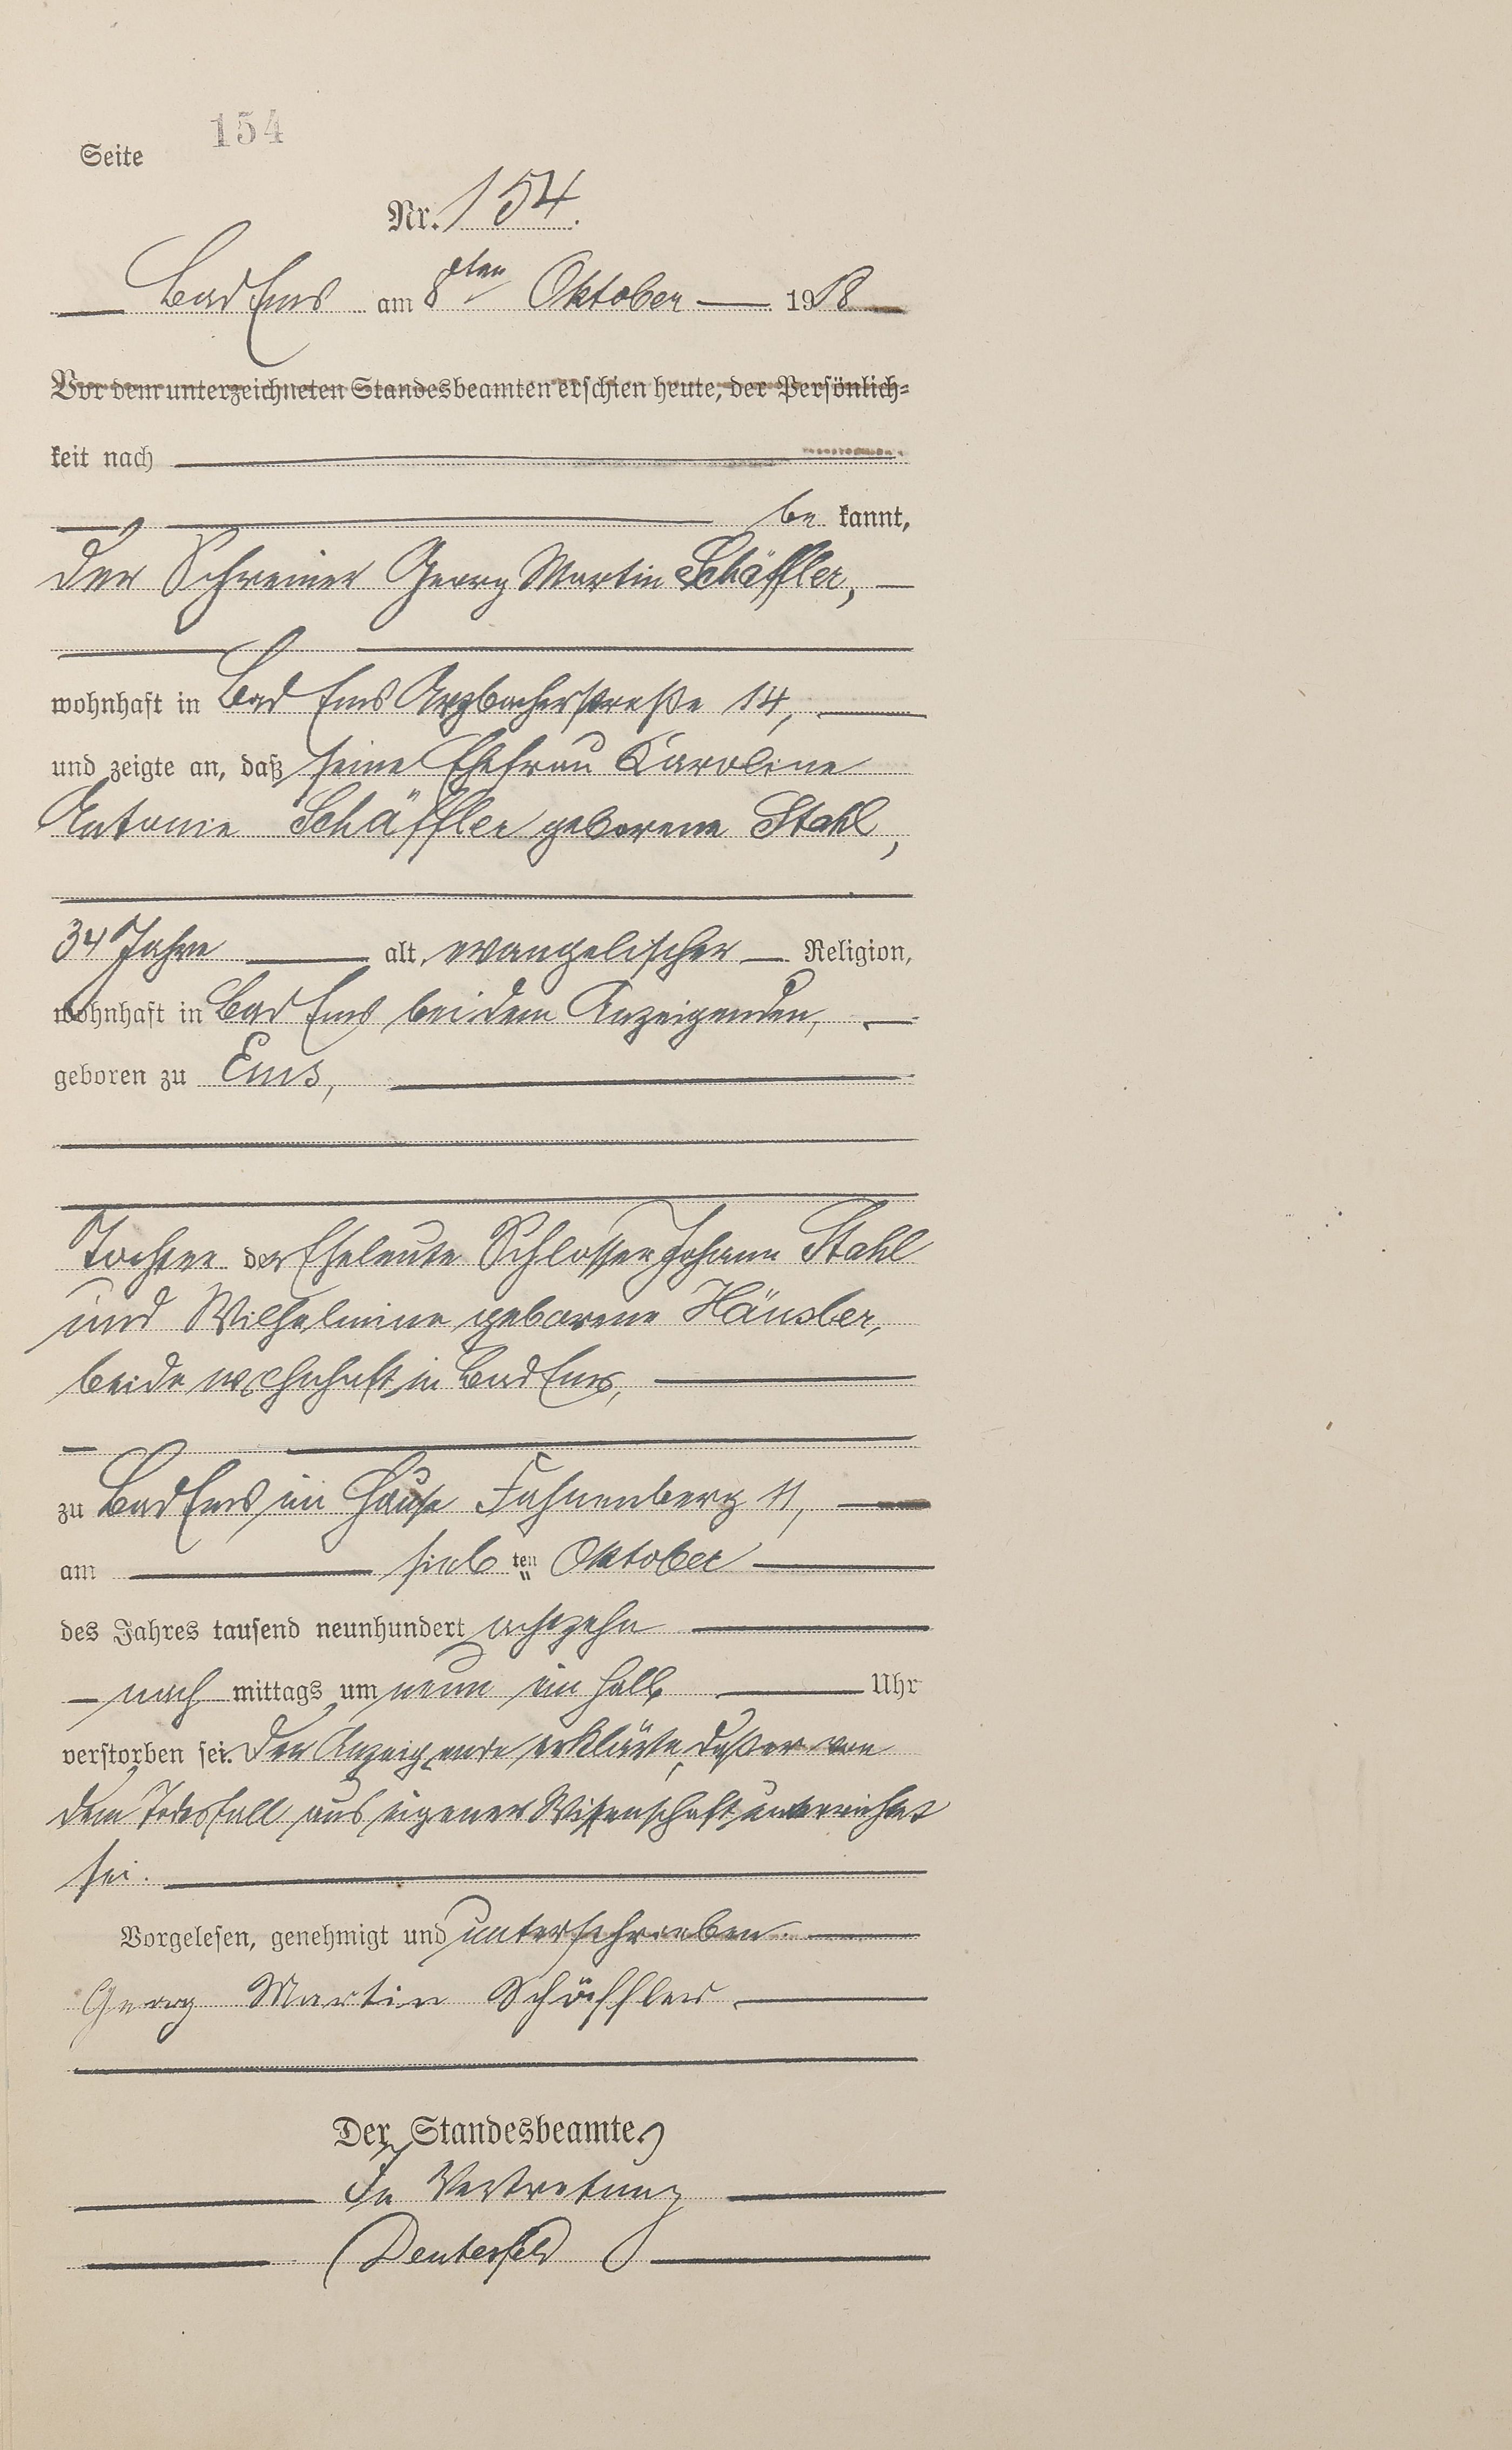 154
Seite
Nr. 154.
Bad Ems am 8ten Oktober 1918
Vor dem unterzeichneten Standesbeamten erschien heute, der Persönlich-
keit nach
be kannt,
der Schreiner Georg Martin Schäffler,
wohnhaft in Bad Ems Arzbacherstraße 14,
und zeigte an, daß seine Ehefrau Karoline
Antonie Schäffler geborene Stahl,
34 Jahre alt, evangelischer Religion,
wohnhaft in Bad Ems bei dem Anzeigenden,
geboren zu Ems,
Tochter der Eheleute Schlosser Johann Stahl
und Wilhelmine geborene Häusler,
beide wohnhaft in Bad Ems,
zu Bad Ems im Hause Fahnenberg 11,
am sieb ten Oktober
des Jahres tausend neunhundert achtzehn
nach mittags um neun ein halb Uhr
verstorben sei. Der Anzeigende erklärte, daß er von
dem Todesfall aus eigener Wissenschaft unterrichtet
sei.
Vorgelesen, genehmigt und unterschrieben.
Georg Martin Schäffler
Der Standesbeamte.
In Vertretung